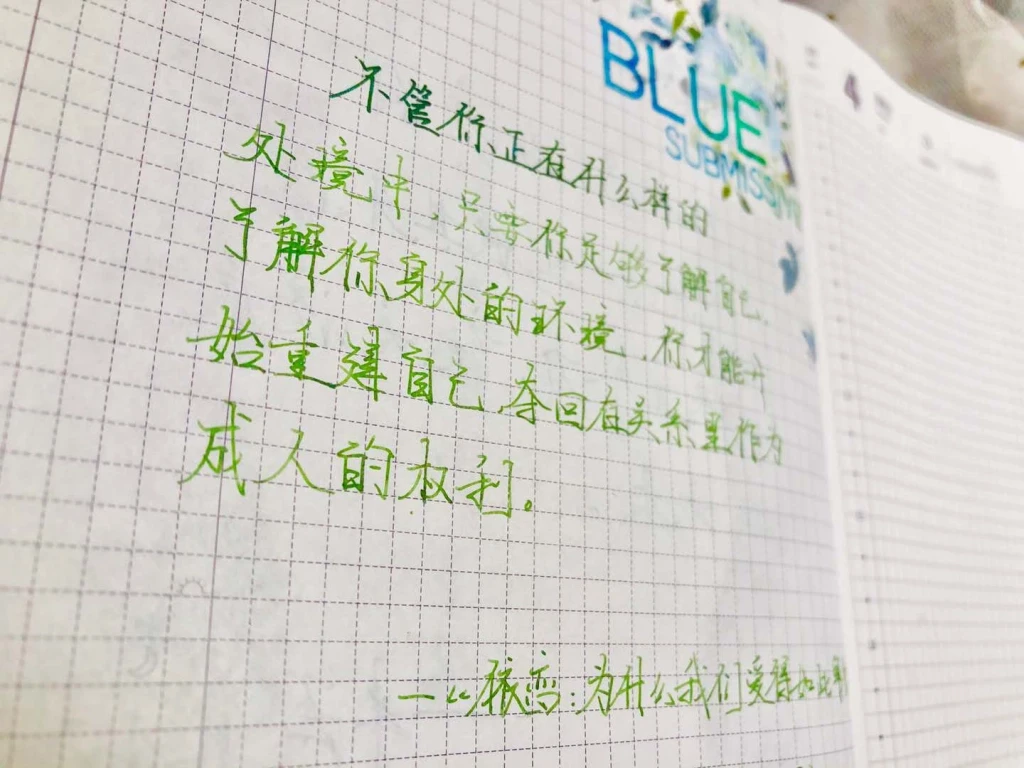 BLUE
SUBMISSION
不管你正在什么样的
处境中，只要你足够了解自己，
了解你身处的环境，你才能开
始重建自己，夺回在关系里作为
成人的权利。
——《依恋：为什么我们爱得如此
4